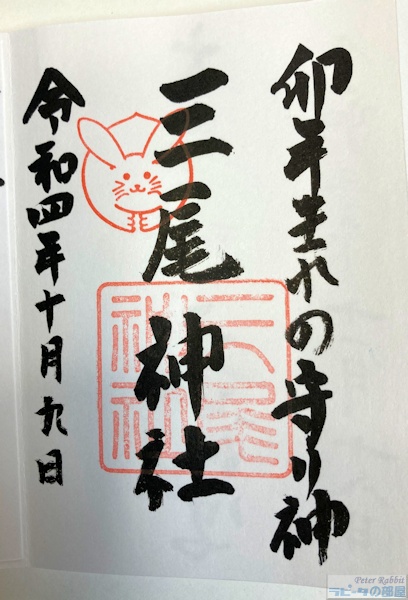 卯年生れの守り神
三尾神社
令和四年十月九日
三尾神社
Peter Rabbit
ラビータの部屋